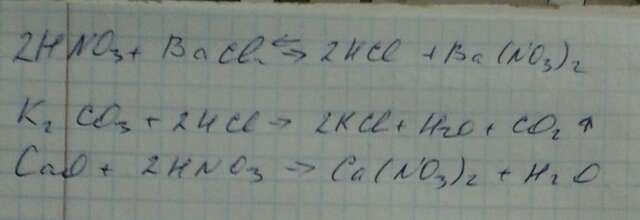 2HNO₃ + BaCl₂ ⇄ 2HCl + Ba(NO₃)₂
K₂CO₃ + 2HCl → 2KCl + H₂O + CO₂ ↑
CaO + 2HNO₃ → Ca(NO₃)₂ + H₂O